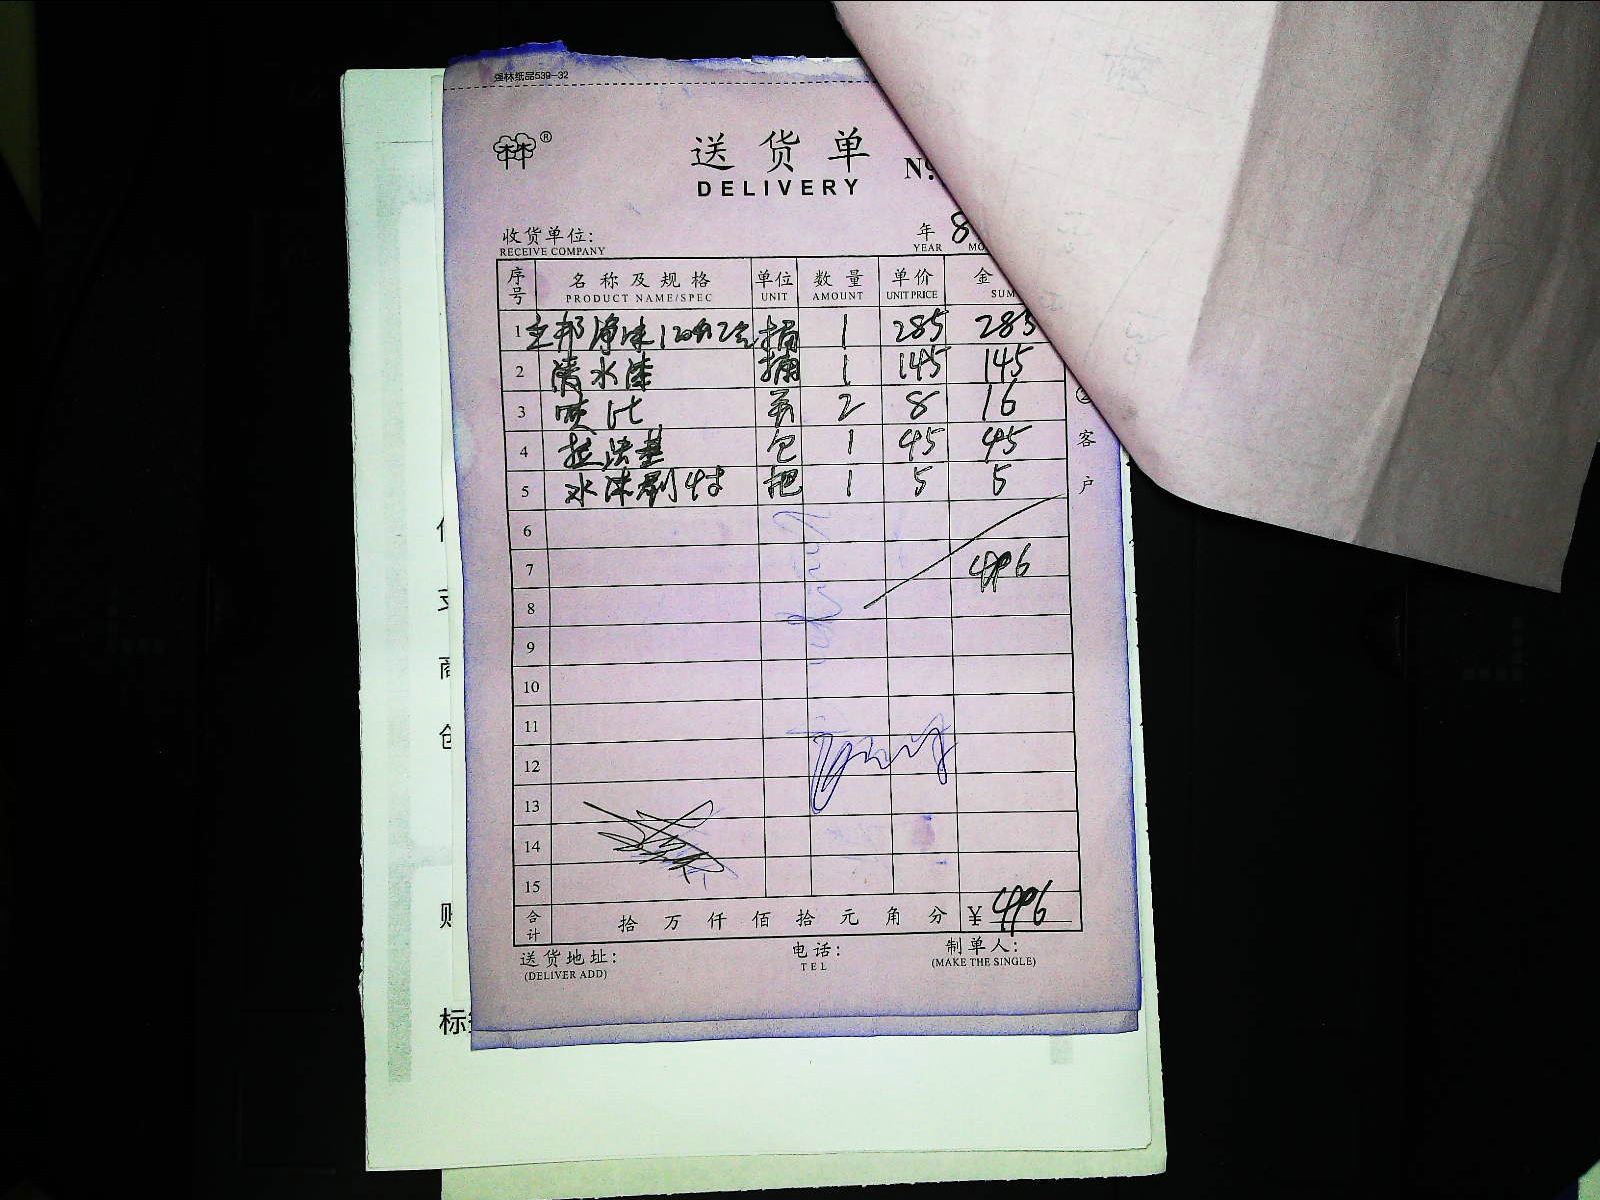 强林纸品539-32
®
送货单
DELIVERY
№
收货单位:
RECEIVE COMPANY
年 8
YEAR MO
序号 名称及规格 单位 数量 单价 金
PRODUCT NAME/SPEC UNIT AMOUNT UNIT PRICE SUM
1 立邦净味120 2 桶 1 285 285
2 清水漆 桶 1 145 145
3 喷 2 8 16
4 拉法基 包 1 45 45
5 水漆刷4寸 把 1 5 5
6
7 496
8
9
10
11
12
13
14
15
合计 拾 万 仟 佰 拾 元 角 分 ¥ 496
②客户
送货地址:
(DELIVER ADD)
电话:
TEL
制单人:
(MAKE THE SINGLE)
标